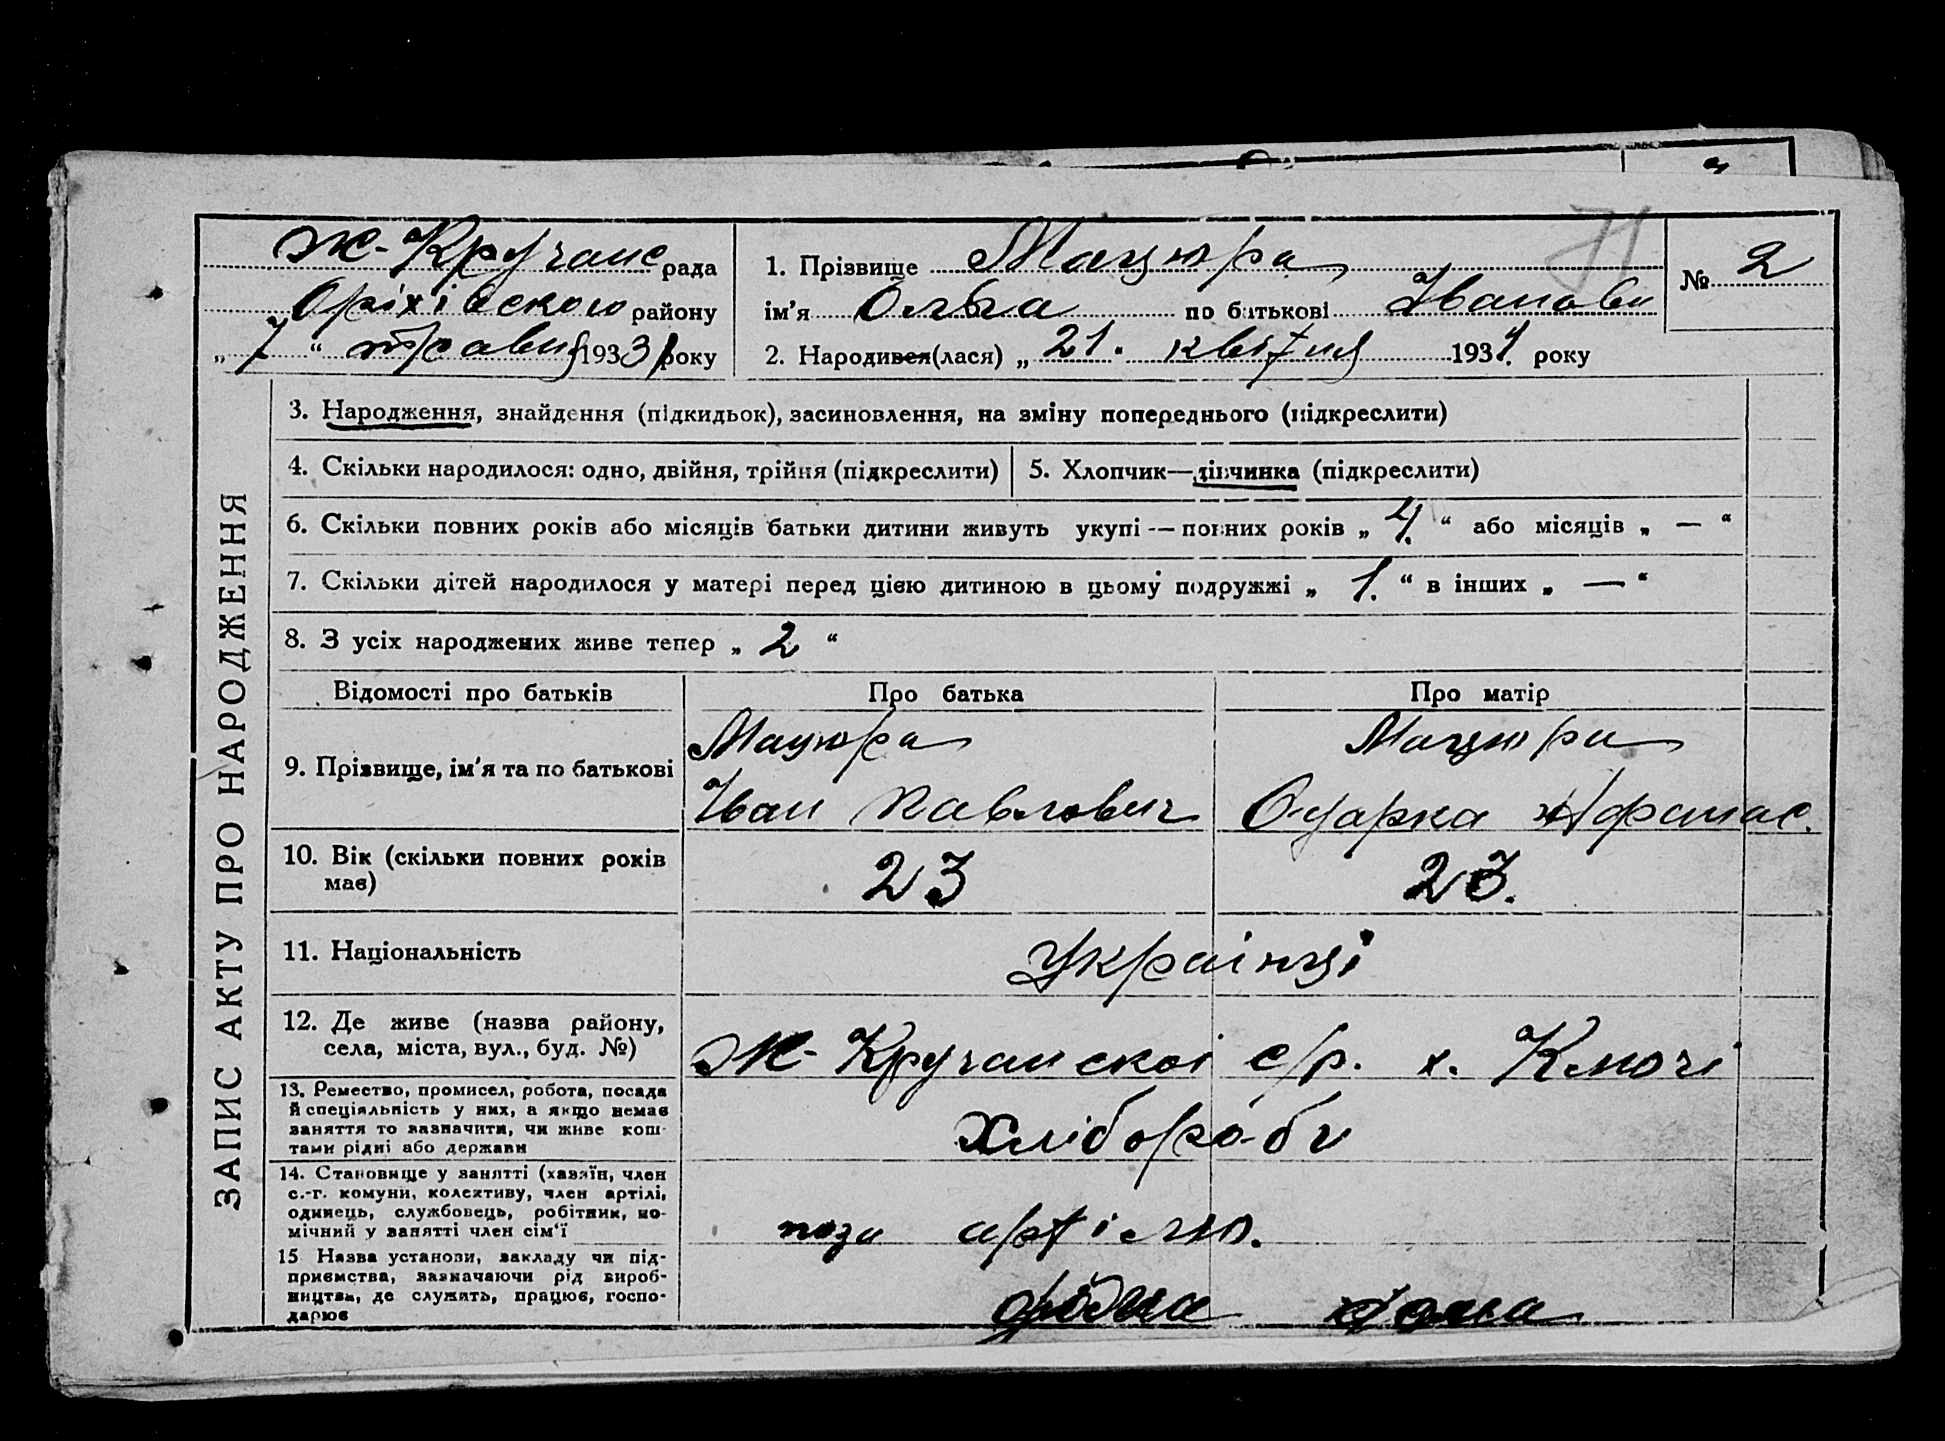 Ж-Кручанс рада
Оріхівского району
„ 7 “ травня 1931 року
1. Прізвище Мацюра
ім'я Ольга по батькові Іванови
2. Народився(лася) „ 21. квітня 1931. року
№ 2
71
ЗАПИС АКТУ ПРО НАРОДЖЕННЯ
3. Народження, знайдення (підкидьок), засиновлення, на зміну попереднього (підкреслити)
4. Скільки народилося: одно, двійня, трійня (підкреслити)
5. Хлопчик—дівчинка (підкреслити)
6. Скільки повних років або місяців батьки дитини живуть укупі — повних років „ 4. “ або місяців „ — “
7. Скільки дітей народилося у матері перед цією дитиною в цьому подружжі „ 1. “ в інших „ — “
8. З усіх народжених живе тепер „ 2 “
Відомості про батьків Про батька Про матір
9. Прізвище, ім'я та по батькові
Мацюра
Іван Павлович
Мацюра
Одарка Афанас.
10. Вік (скільки повних років
має)
23
23.
11. Національність
Українці
12. Де живе (назва району,
села, міста, вул., буд. №)
Ж-Кручанскоі с/р. х. Ключі
13. Ремество, промисел, робота, посада
й спеціяльність у них, а якщо немає
заняття то зазначити, чи живе кош-
тами рідні або держави
Хлібороби
14. Становище у занятті (хазяїн, член
с.-г. комуни, колективу, член артілі,
одинець, службовець, робітник, по-
мічний у занятті член сім'ї
поза артіллю.
15 Назва установи, закладу чи під-
приємства, зазначаючи рід вироб-
ництва, де служить, працює, госпо-
дарює